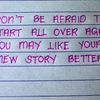 DON'T BE AFRAID T
START ALL OVER AGAI
YOU MAY LIKE YOUR
NEW STORY BETTER